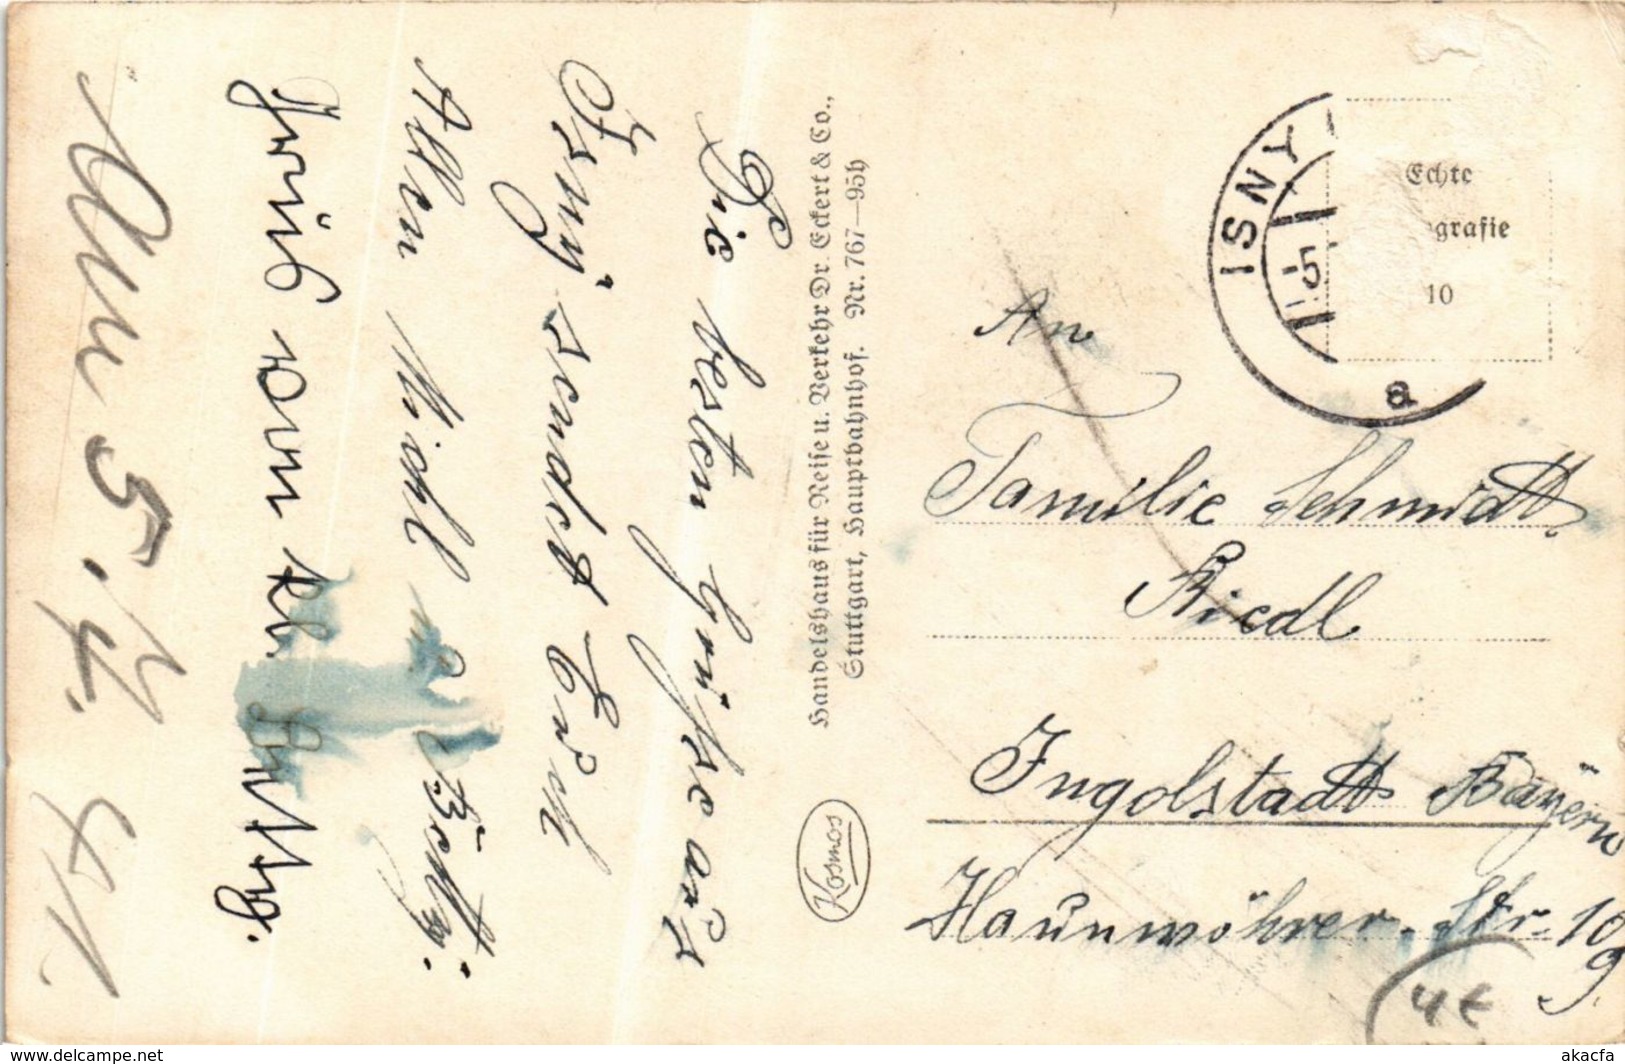 Die besten Grüsse aus
Isny sendet Euch
Allen Michl
Gruß vom
Am 5.4. 41.
Handelshaus für Reise u. Verkehr Dr. Eckert & Co.,
Stuttgart, Hauptbahnhof. Nr. 767—95h
Kosmos
ISNY
-5
a
Echte
grafie
10
An
Familie Schmidt
Riedl
Ingolstadt Bayern
Haunwöhrer-Str. 109
4 €
www.delcampe.net
akacfa